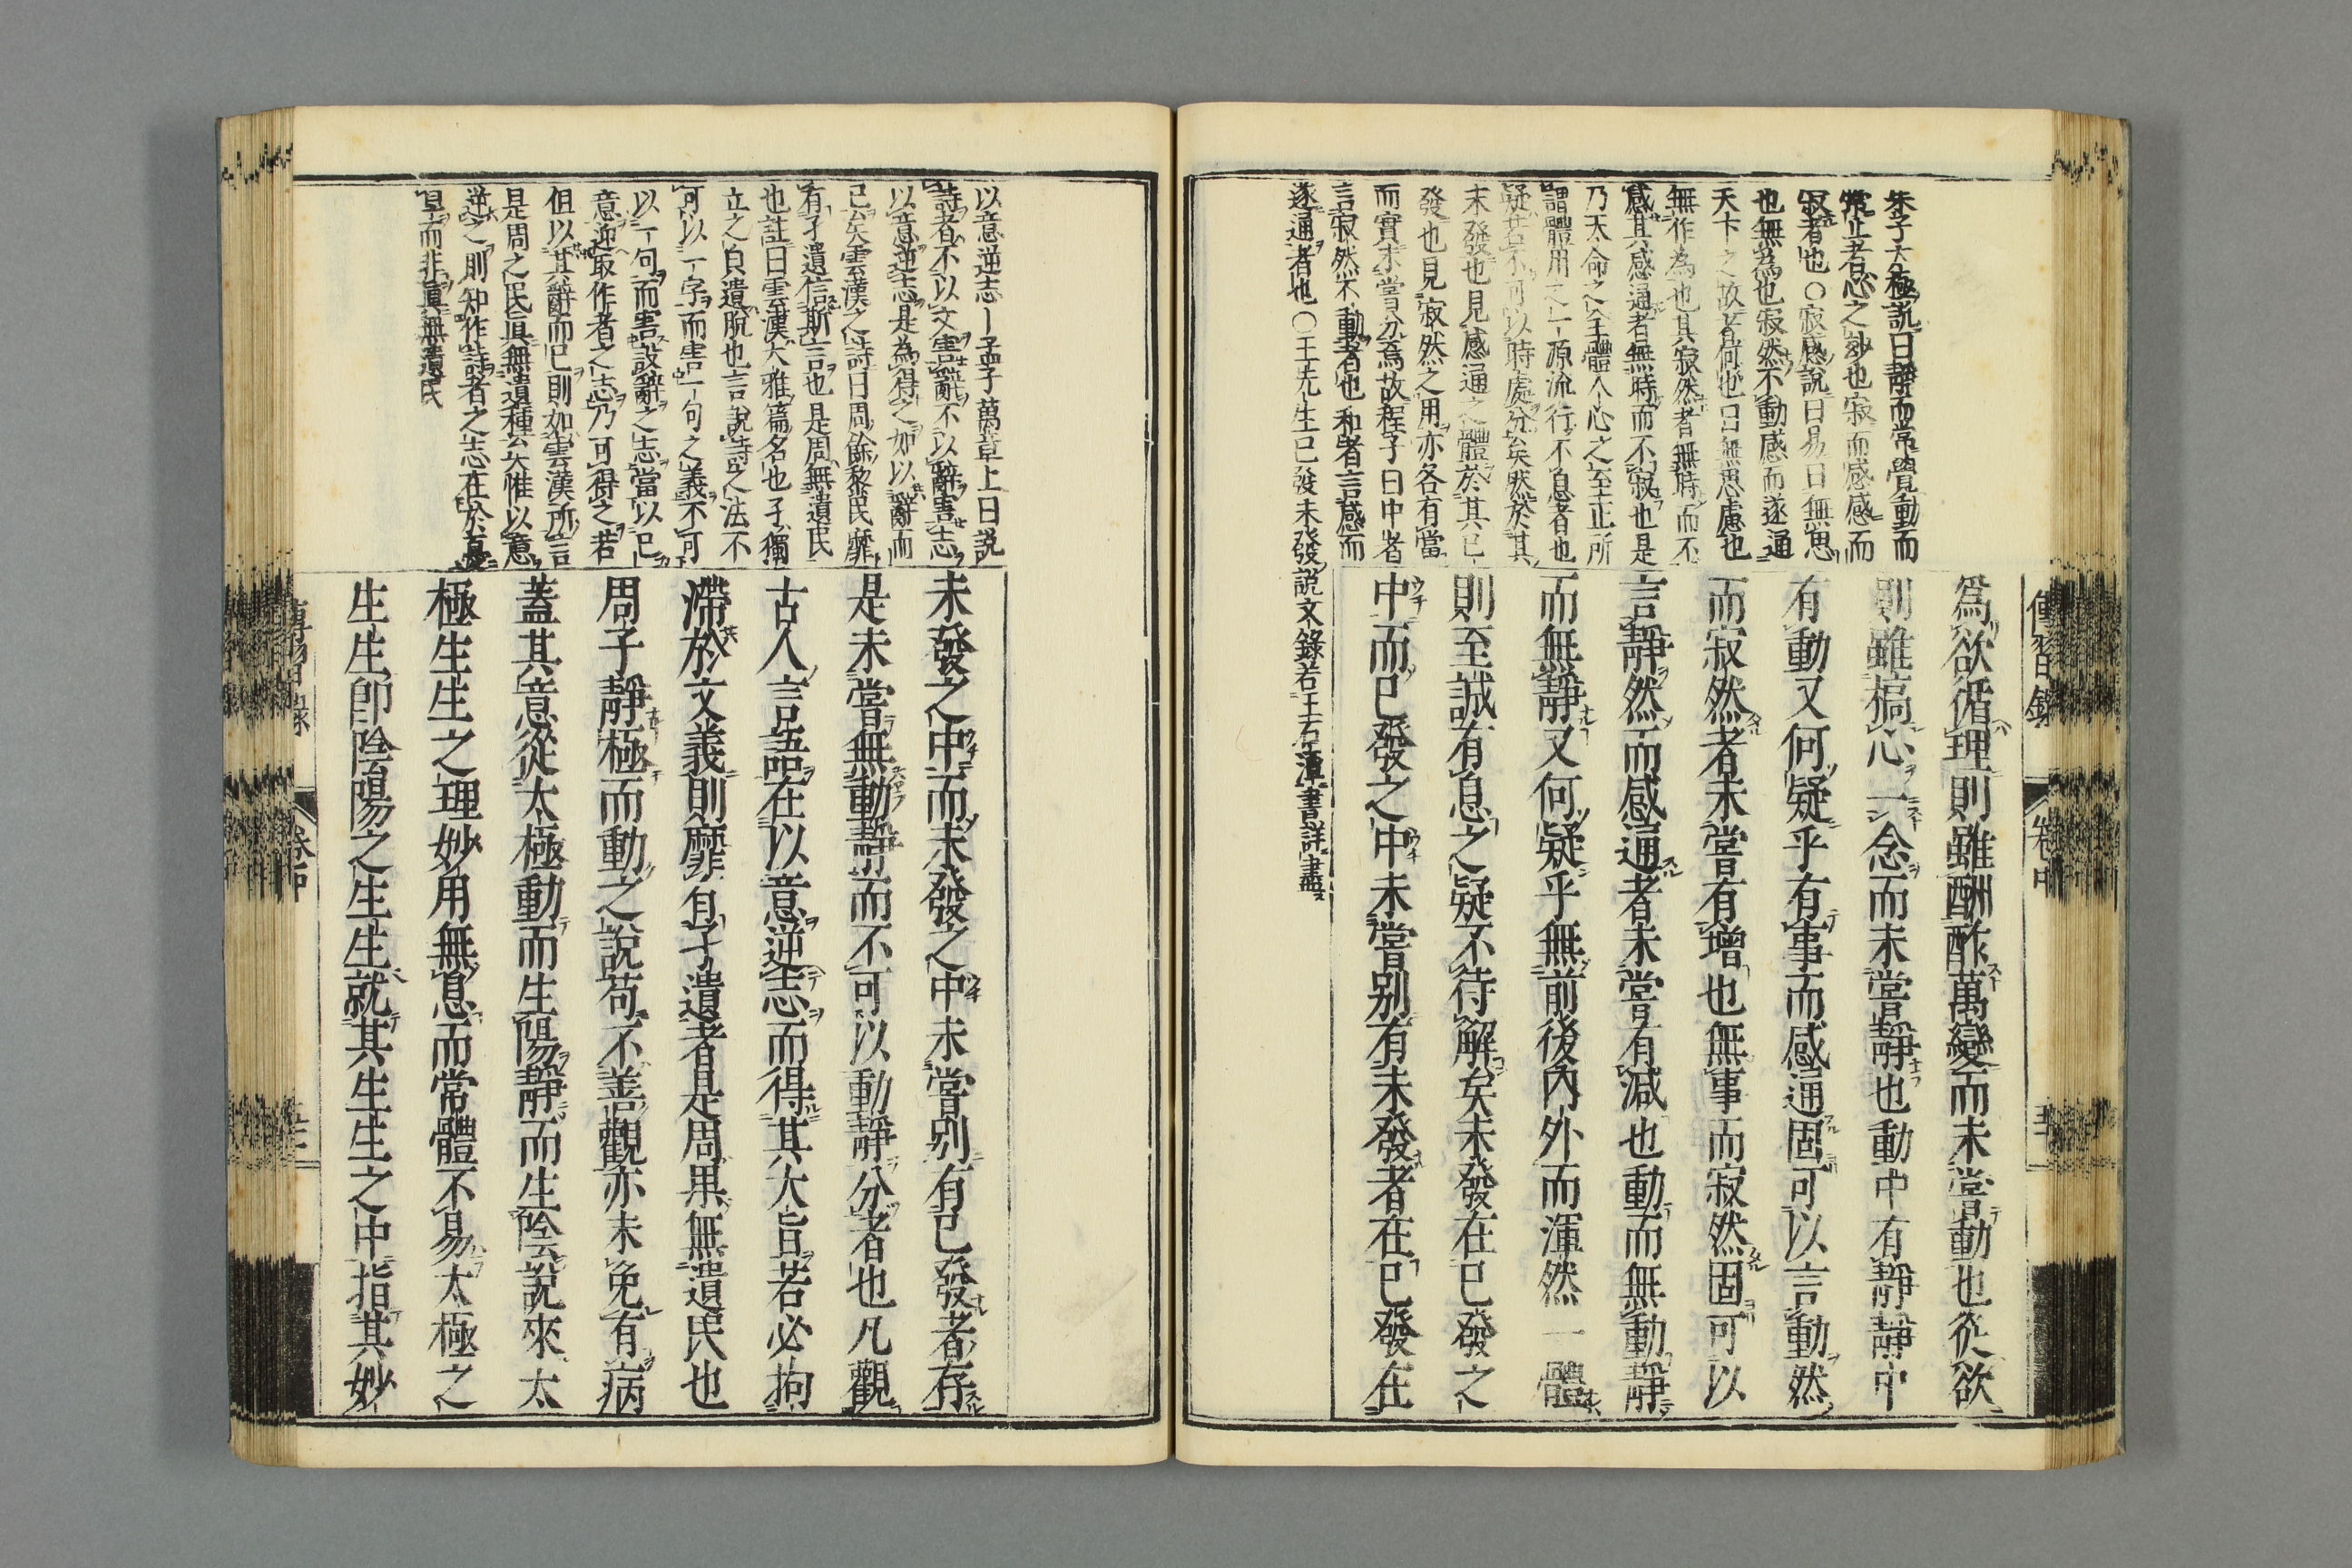 傳習錄
卷中
朱子太極說曰靜而常覺動而
常止者心之妙也寂而感感而
寂者也〇寂感說曰易曰無思
也無爲也寂然不動感而遂通
天下之故者何也曰無思慮也
無作為也其寂然者無時而不
感其感通者無時而不寂也是
乃天命之全體人心之至正所
謂體用之一源流行不息者也
疑若不可以時處分矣然於其
未發也見感通之體於其已
發也見寂然之用亦各有當
而實未嘗分焉故程子曰中者
言寂然不動者也和者言感而
遂通者也〇王先生已發未發說文錄若王石潭書詳盡
爲欲循理則雖酬酢萬變而未嘗動也從欲
則雖槁心一念而未嘗靜也動中有靜靜中
有動又何疑乎有事而感通固可以言動然
而寂然者未嘗有增也無事而寂然固可以
言靜然而感通者未嘗有減也動而無動靜
而無靜又何疑乎無前後內外而渾然一體
則至誠有息之疑不待解矣未發在已發之
中而已發之中未嘗別有未發者在已發在
以意逆志—孟子萬章上曰說
詩者不以文害辭不以辭害志
以意逆志是為得之如以辭而
已矣雲漢之詩曰周餘黎民靡
有孑遺信斯言也是周無遺民
也註曰雲漢大雅篇名也孑獨
立之皃遺脫也言說詩之法不
可以一字而害一句之義不可
以一句而害設辭之志當以己
意迎取作者之志乃可得之若
但以其辭而已則如雲漢所言
是周之民眞無遺種矣惟以意
逆之則知作詩者之志在於憂
旱而非眞無遺民
未發之中而未發之中未嘗別有已發者存
是未嘗無動靜而不可以動靜分者也凡觀
古人言語在以意逆志而得其大旨若必拘
滯於文義則靡有孑遺者是周果無遺民也
周子靜極而動之說苟不善觀亦未免有病
蓋其意從太極動而生陽靜而生陰說來太
極生生之理妙用無息而常體不易太極之
生生卽陰陽之生生就其生生之中指其妙
傳習錄
卷中